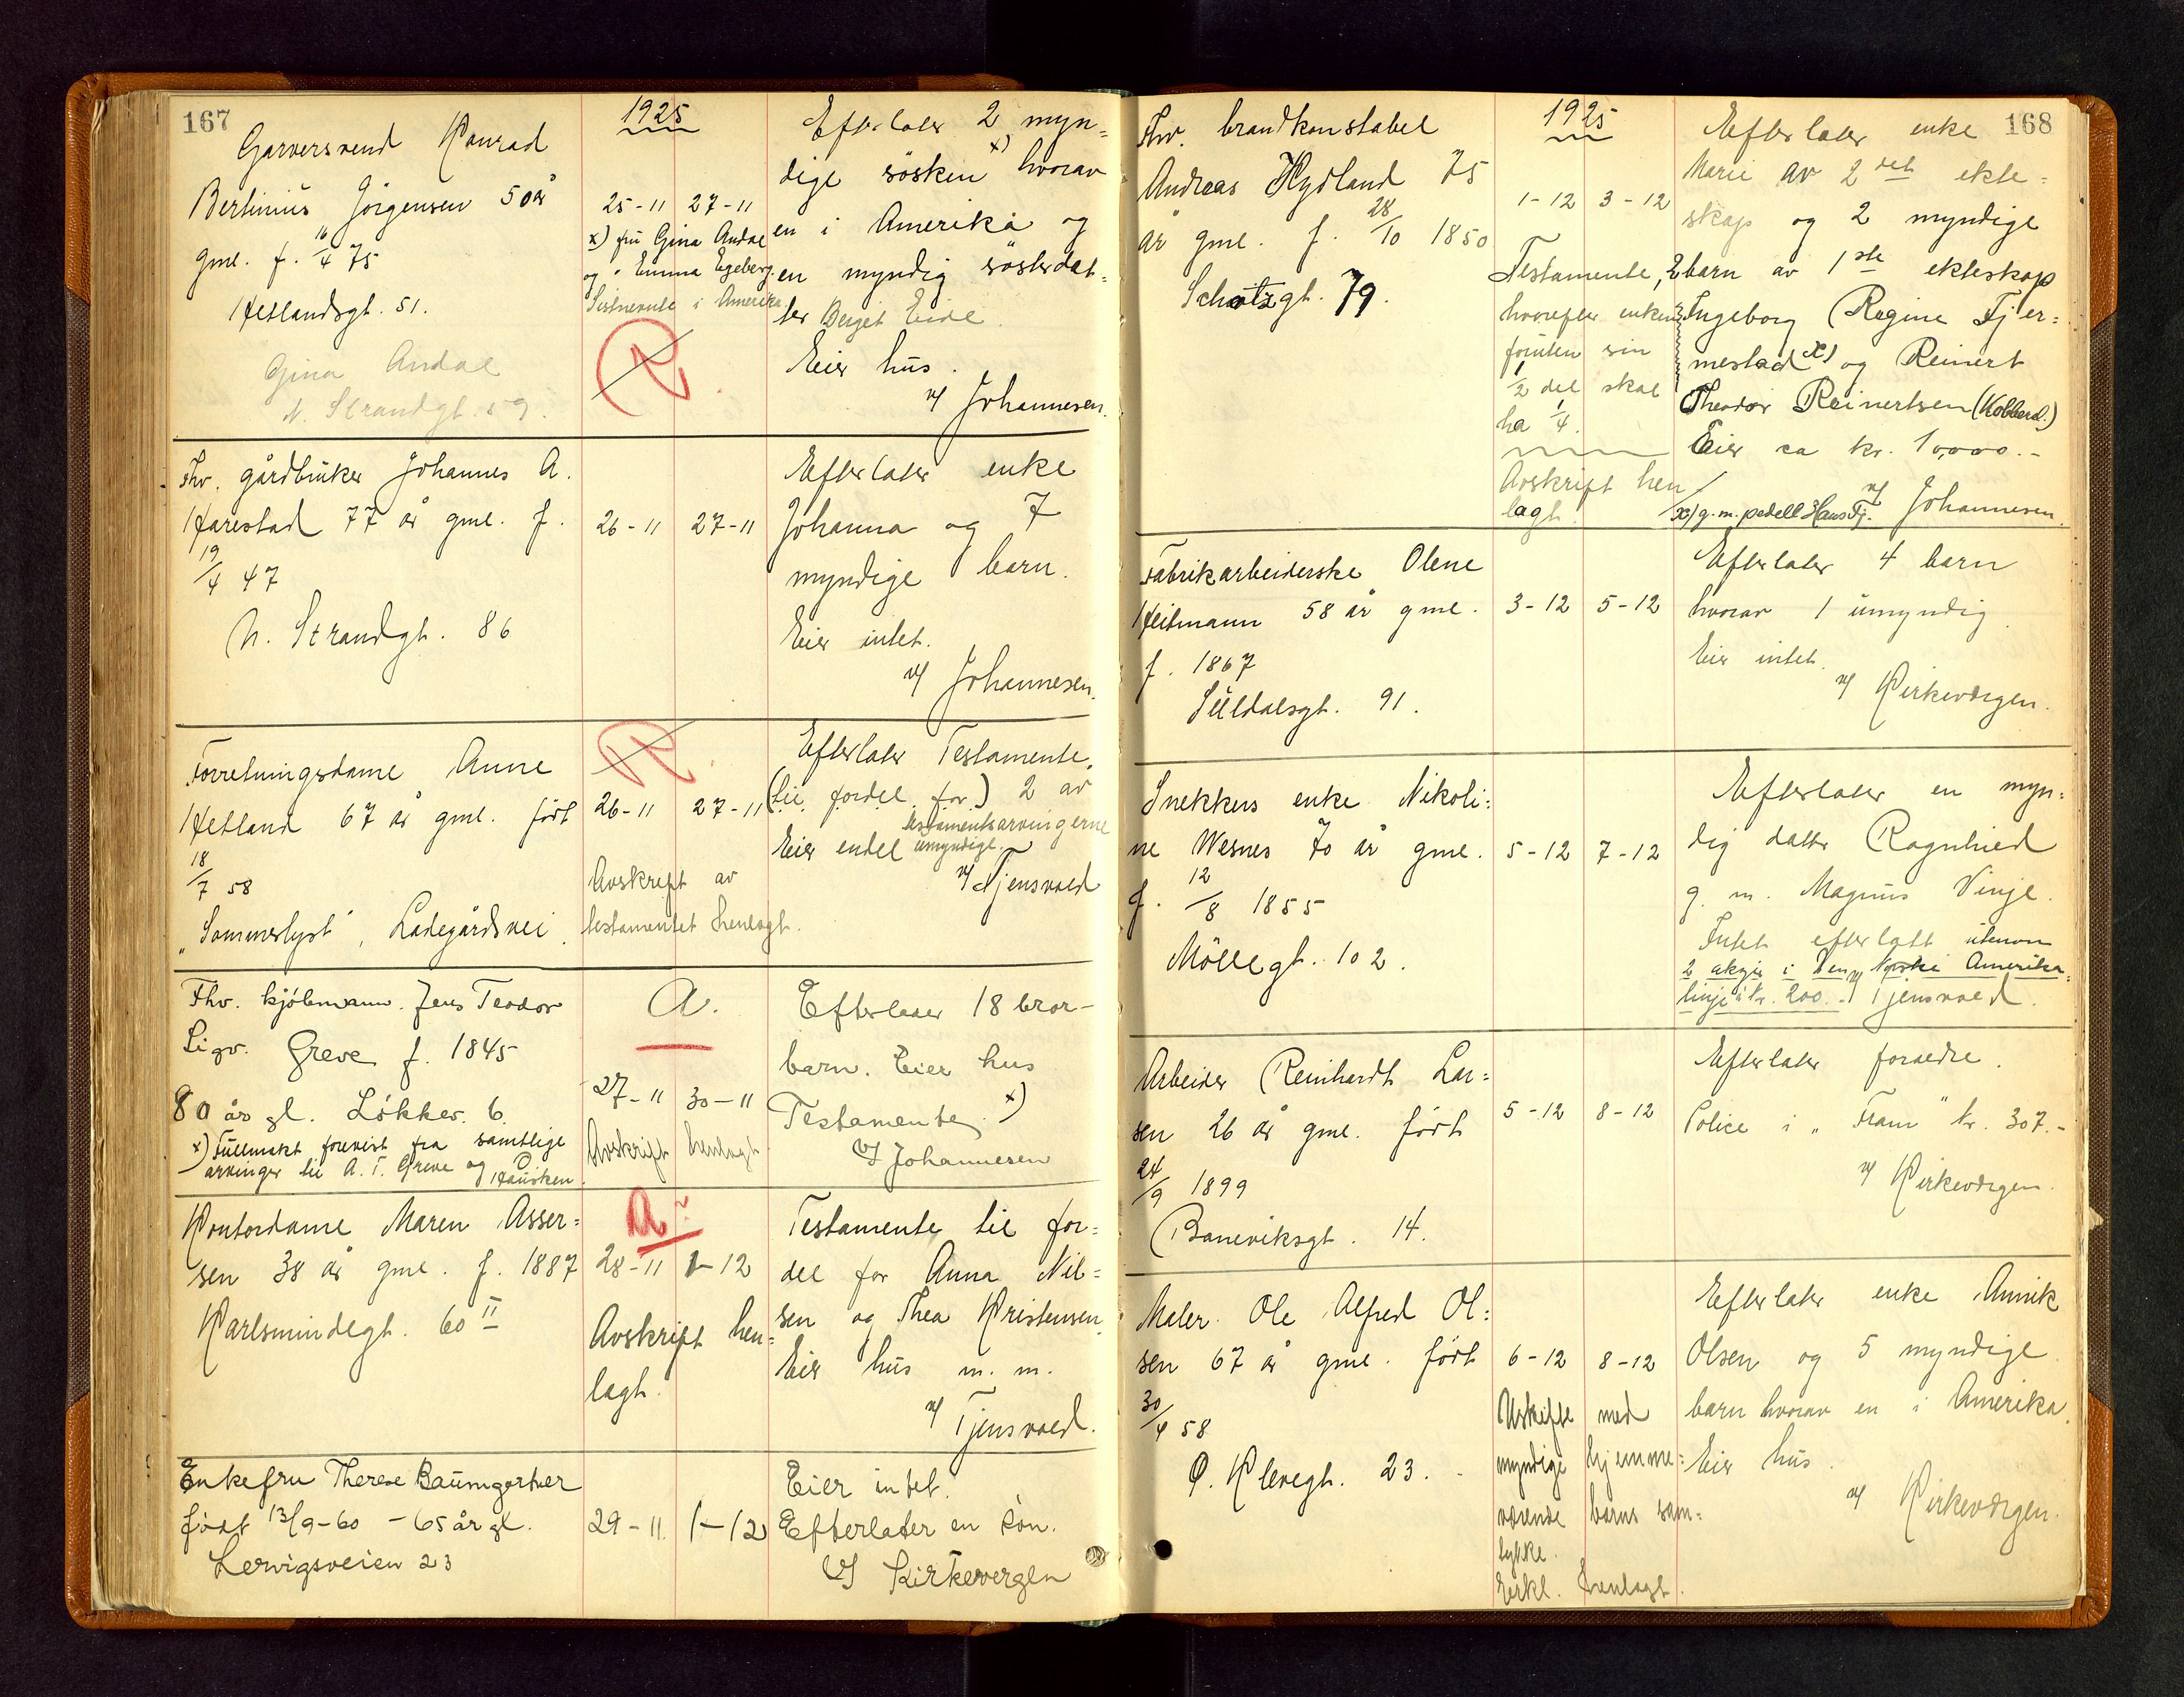 167
1925
Garversvend Konrad
Bertinius Jörgensen 50 år
gml. f. 16/4 75
Hetlandsgt. 51.
Gina Andal
N. Strandgt. 59.
25-11 27-11
x) fru Gina Andal
og " Emma Egeberg.
Sistnevnte i Amerika.
R.
Efterlater 2 myn=
dige söskenx) hvorav
en i Amerika og
en myndig sösterdat=
ter Berget Eide.
Eier hus.
v/ Johannesen.
Fhv. gårdbruker Johannes A.
Harestad 77 år gml. f.
19/4 47
N. Strandgt. 86
26-11 27-11
Efterlater enke
Johanna og 7
myndige barn.
Eier intet.
v/ Johannesen.
Forretningsdame Anne
Hetland 67 år gml. født
18/7 58
"Sommerlyst", Ladegårdsvei.
R.
26-11 27-11
Avskrift av
testamentet henlagt.
Efterlater Testamente.
(til fordel for) 2 av
testamentsarvingerne
umyndige.
Eier endel
v/ Tjensvold
Fhv. kjöbmann. Jens Teodor
Sigv. Greve f. 1845
80 år gl. Løkkev. 6.
x) Fullmakt forevist fra samtlige
arvinger til A. T. Greve og Hausken.
A.
27-11 30-11
Avskrift henlagt
Efterlater 18 bror-
barn. Eier hus
Testamente. x)
v/ Johannesen
Kontordame Maren Asser=
sen 38 år gml. f. 1887
Karlsmindegt. 60 II
A
28-11 1-12
Avskrift hen=
lagt.
Testamente til for=
del for Anna Nil=
sen og Thea Kristensen.
Eier hus m. m.
v/ Tjensvold.
Enkefru Therese Baumgartner
født 13/9-60 - 65 år gl.
Lervigsveien 23
29-11. 1-12
Eier intet.
Efterlater en sön.
v/ Kirkevergen
168
1925
Fhv. brandkonstabel
Andreas Hydland 75
år gml. f. 28/10 1850
Schøtzgt. 79.
1-12 3-12
Testamente,
hvorefter enken
foruten sin
1/2 del skal
ha 1/4.
Avskrift hen
lagt.
Efterlater enke
Marie av 2det ekte=
skap og 2 myndige
2 barn av 1ste ekteskap
Ingeborg Regine Tjer=
mestadx) og Reinert
Theodor Reinertsen
Eier ca kr. 10,000.-
v/ Johannesen.
x) g. m. pedell Hans Tj.
Fabrikarbeiderske Olene
Heitmann 58 år gml.
f. 1867
Suldalsgt. 91.
3-12 5-12
Efterlater 4 barn
hvorav 1 umyndig.
Eier intet.
v/ Kirkevergen.
Snekkers enke Nikoli=
ne Wesnes 70 år gml.
f. 12/8 1855
Möllegt. 102.
5-12 7-12
Efterlater en myn=
dig datter Ragnhild
g. m. Magnus Vinje.
Intet efterlatt utenom
2 aksjer i Den Norske Amerika=
linje à kr. 200.-
v/ Tjensvold.
Arbeider Reinhardt Lar=
sen 26 år gml. født
24/9 1899
Baneviksgt. 14.
5-12 8-12
Efterlater foreldre.
Police i "Fram" kr. 307.-
v/ Kirkevergen.
Maler Ole Alfred Ol=
sen 67 år gml. født
30/4 58
Ø. Klevegt. 23.
6-12 8-12
Uskifte med
myndige hjemme=
værende barns sam=
tykke.
Erkl. henlagt.
Efterlater enke Annik
Olsen og 5 myndige
barn hvorav en i Amerika.
Eier hus.
v/ Kirkevergen.